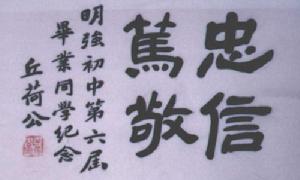 忠信
篤敬
明強初中第六届
畢業同學紀念
丘荷公